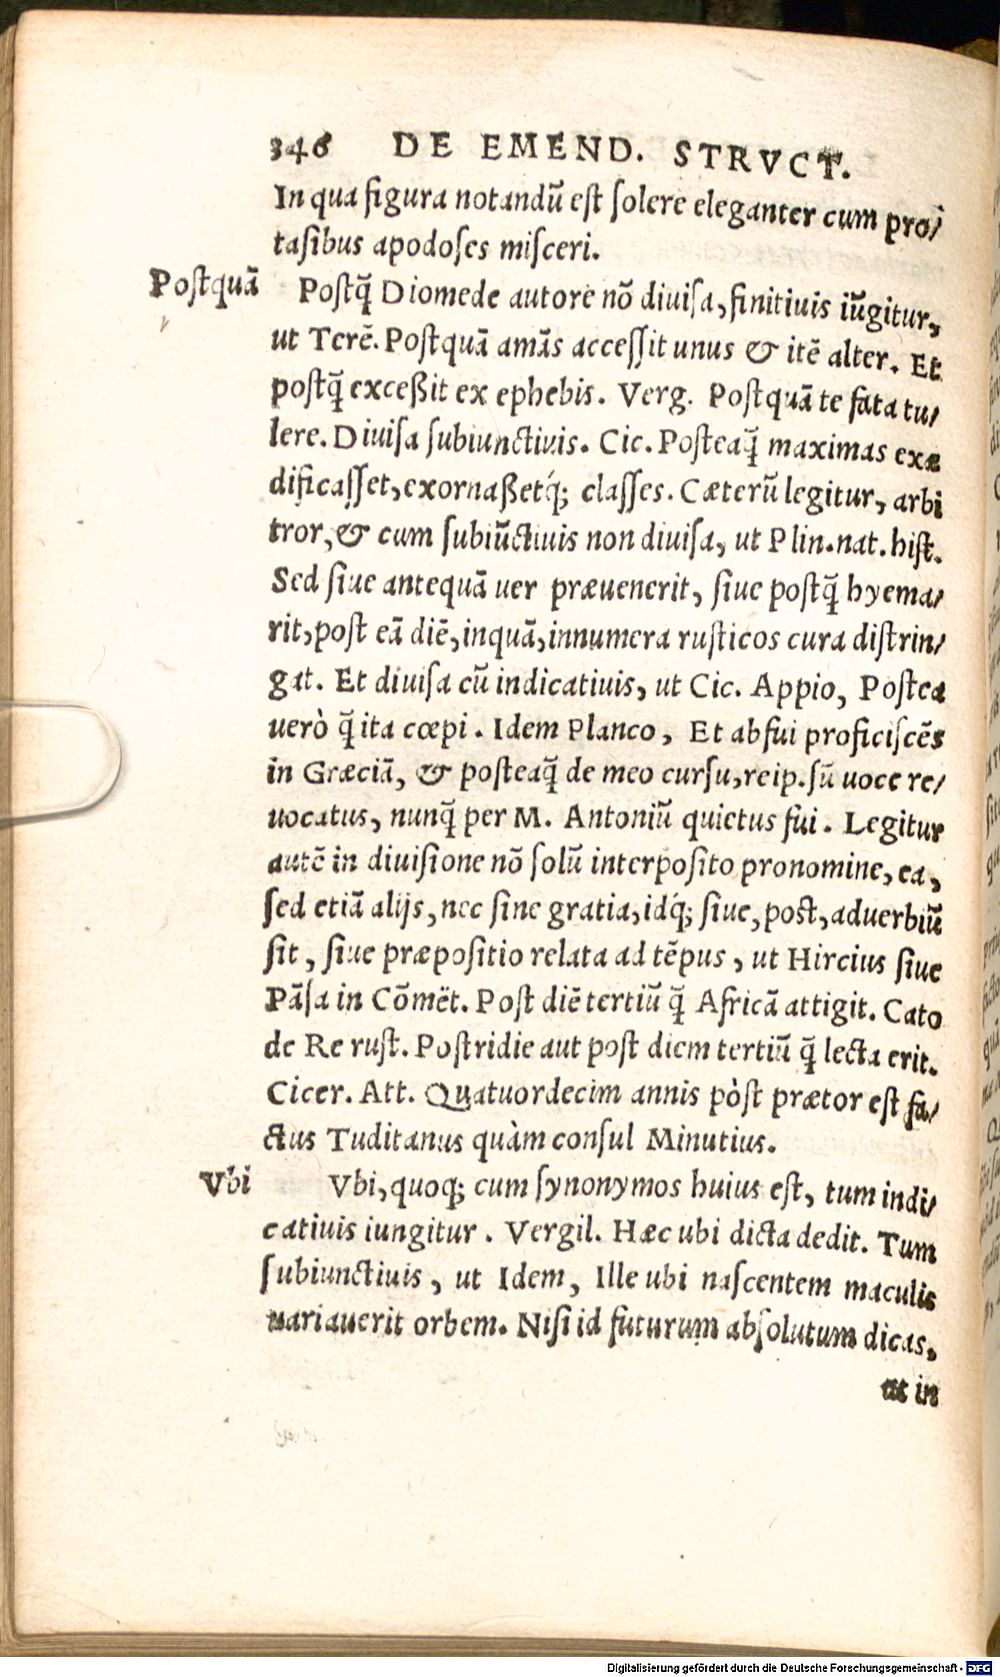 346 DE EMEND. STRVCT.
In qua figura notandũ est solere eleganter cum pro/
tasibus apodoses misceri.
Postquã
Postq̃ Diomede autore nõ diuisa, finitiuis iũgitur,
ut Terẽ. Postquã amãs accessit unus & itẽ alter. Et
postq̃ exceßit ex ephebis. Verg. Postquã te fata tu/
lere. Diuisa subiunctiuis. Cic. Posteaq̃ maximas exæ
dificasset, exornaßetq́; classes. Cæterũ legitur, arbi
tror, & cum subiũctiuis non diuisa, ut Plin. nat. hist.
Sed siue antequã uer præuenerit, siue postq̃ hyema/
rit, post eã diẽ, inquã, innumera rusticos cura distrin/
gat. Et diuisa cũ indicatiuis, ut Cic. Appio, Postea
uerò q̃ ita cœpi. Idem Planco, Et abfui proficiscẽs
in Græciã, & posteaq̃ de meo cursu, reip. sũ uoce re/
uocatus, nunq̃ per M. Antoniũ quietus fui. Legitur
autẽ in diuisione nõ solũ interposito pronomine, ea,
sed etiã alijs, nec sine gratia, idq́; siue, post, aduerbiũ
sit, siue præpositio relata ad tẽpus, ut Hircius siue
Pãsa in Cõmẽt. Post diẽ tertiũ q̃ Africã attigit. Cato
de Re rust. Postridie aut post diem tertiũ q̃ lecta erit.
Cicer. Att. Quatuordecim annis pòst prætor est fa/
ctus Tuditanus quàm consul Minutius.
Vbi
Vbi, quoq; cum synonymos huius est, tum indi/
catiuis iungitur. Vergil. Hæc ubi dicta dedit. Tum
subiunctiuis, ut Idem, Ille ubi nascentem maculis
uariauerit orbem. Nisi id futurum absolutum dicas,
ut in
Digitalisierung gefördert durch die Deutsche Forschungsgemeinschaft - DFG